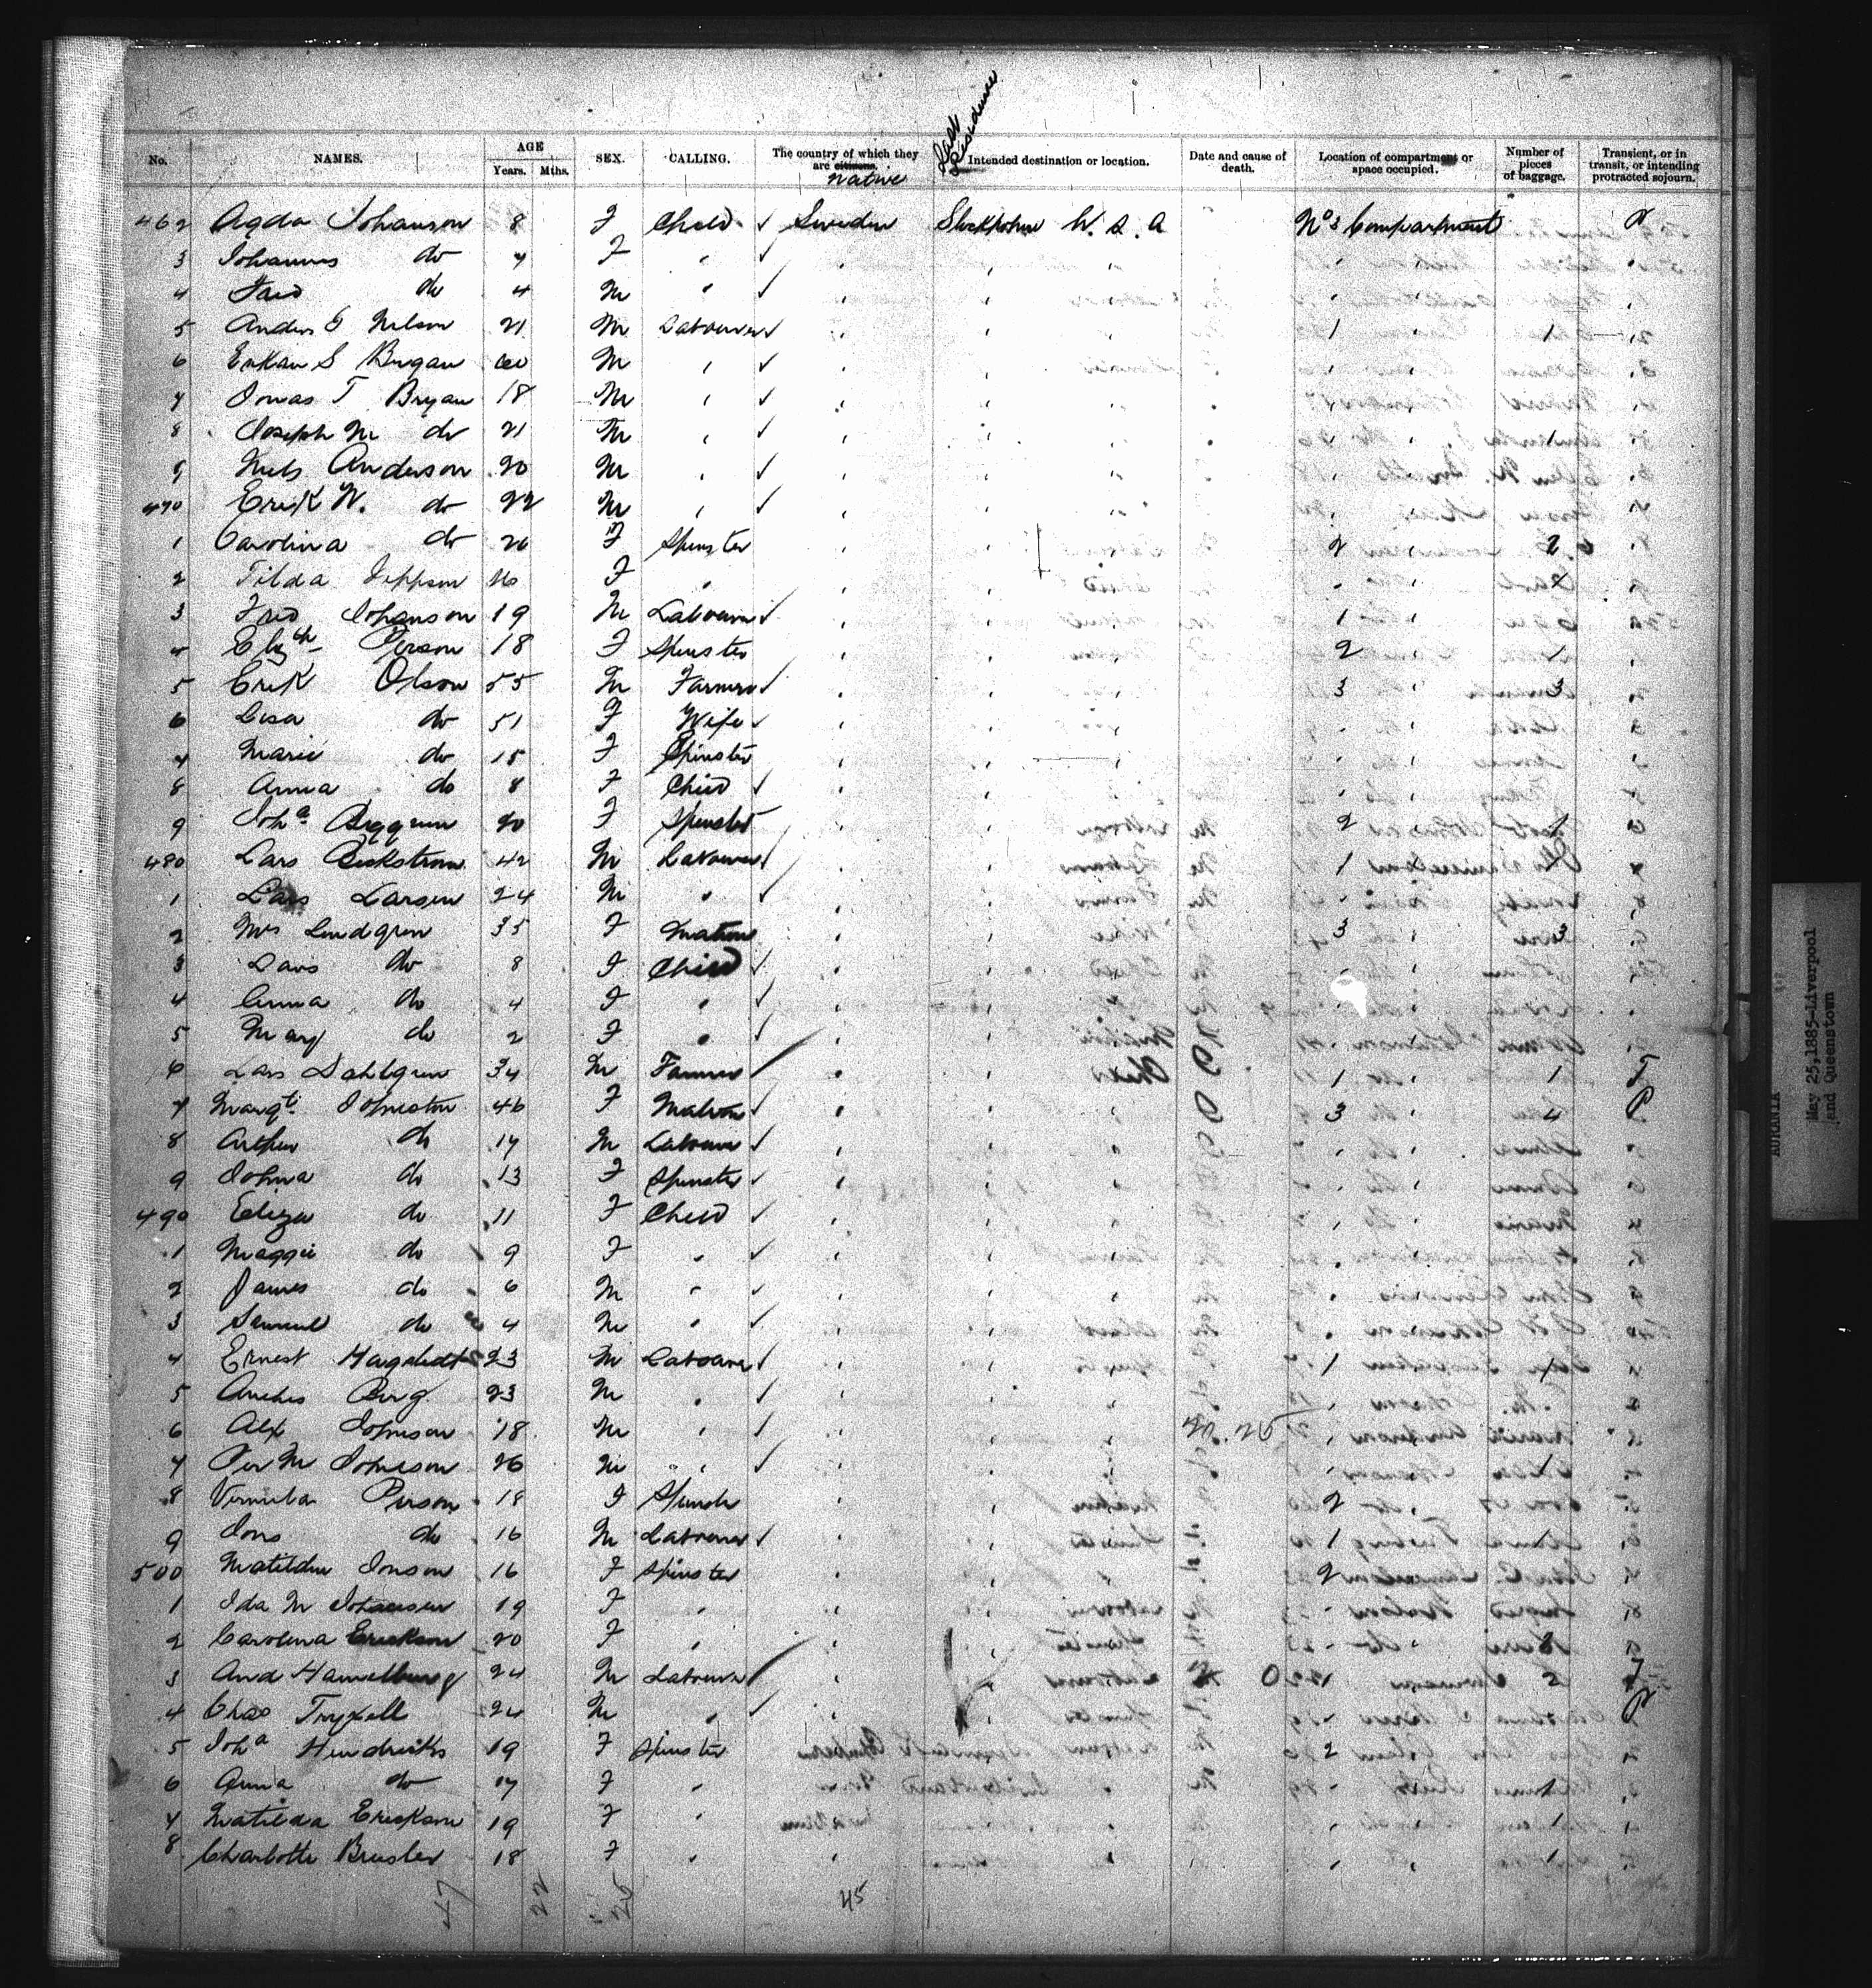 No. NAMES. AGE Years. Mths. SEX. CALLING. The country of which they are citizens. native Intended destination or location. Last Residence Date and cause of death. Location of compartment or space occupied. Number of pieces of baggage. Transient, or in transit, or intending protracted sojourn.
462 Agda Johanson 8 F Child ✓ Sweden Stockholm U.S.A No 3 Compartment P
3 Johannes do 7 F " ✓
4 Fred do 4 M " ✓
5 Anders G Nelson 21 M Labourer ✓ 1 1
6 Erkan S Brygan 60 M " ✓
7 Jonas T Bryan 18 M " ✓
8 Joseph M do 21 M " ✓ 1
9 Neils Anderson 20 M " ✓
470 Erik W. do 22 M " ✓
1 Carolina do 26 F Spinster 2 2
2 Tilda Jeppson 16 F "
3 Fred Johanson 19 M Labourer ✓ 1
4 Elizth Person 18 F Spinster 2 1
5 Erik Olson 55 M Farmer ✓ 3 3
6 Lisa do 51 F Wife ✓
7 Marie do 15 F Spinster
8 Anna do 8 F Child ✓
9 Joha Berggren 20 F Spinster 2 1
480 Lars Beckstrom 42 M Labourer ✓ 1
1 Lars Larsen 24 M " ✓
2 Mrs Lindgren 35 F Matron 3 3
3 Lars do 8 F Child ✓
4 Anna do 4 F " ✓
5 Mary do 2 F " ✓
6 Lars Dahlgren 34 M Farmer ✓ 1 1 T
7 Margt Johnston 46 F Matron ✓ 3 4 P
8 Arthur do 17 M Labourer ✓
9 Johna do 13 F Spinster ✓
490 Eliza do 11 F Child ✓
1 Maggie do 9 F " ✓
2 James do 6 M " ✓
3 Samuel do 4 M " ✓
4 Ernest Hagstedt 23 M Labourer ✓ 1 1
5 Anders Berg 23 M " ✓
6 Alex Johnson 18 M " ✓
7 Per M Johnson 26 M " ✓ 1
8 Person 18 F Spinster 2
9 Jons do 16 M Labourer ✓ 1 1
500 Matilda Jonson 16 F Spinster 2
1 Ida M Johansen 19 F "
2 Carolina Erickson 20 F " 2
3 And Hamelburg 24 M Labourer ✓ 1 2 T
4 Chas Fryxell 24 M " ✓ P
5 Joha Hendricks 19 F Spinster 2
6 Anna do 17 F " 1
7 Matilda Erickson 19 F " 1
8 Charlotte Brusler 18 F " 1
47 22 45
AURANIA
May 25, 1885-Liverpool
and Queenstown